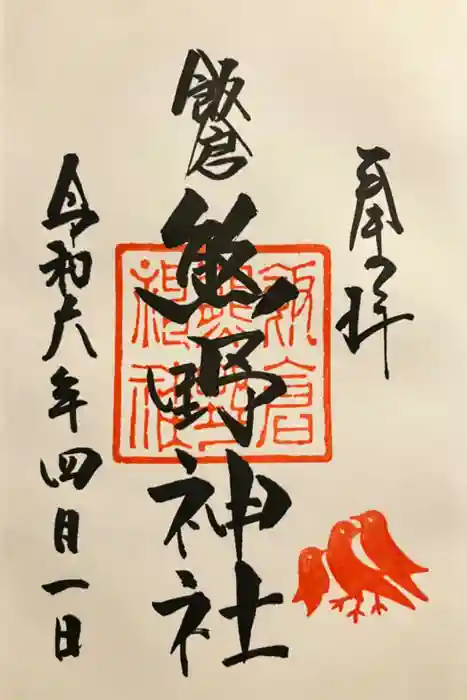 奉拝
飯倉
熊野神社
令和六年四月一日
飯倉
熊野
神社